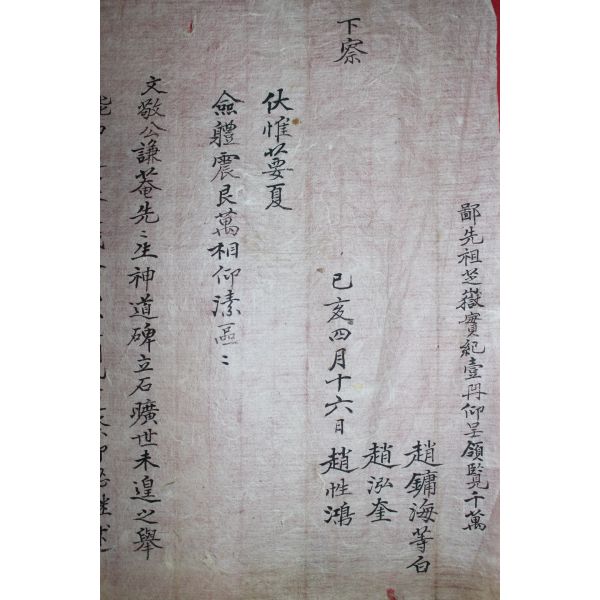 鄙先祖芝嶽實紀壹冊仰呈領覽千萬
趙鏞海等白
趙泓奎
己亥四月十六日 趙性鴻
下察
伏惟蓂夏
僉軆震艮萬相仰溸區〻
文敬公謙菴先〻生神道碑立石曠世未遑之舉